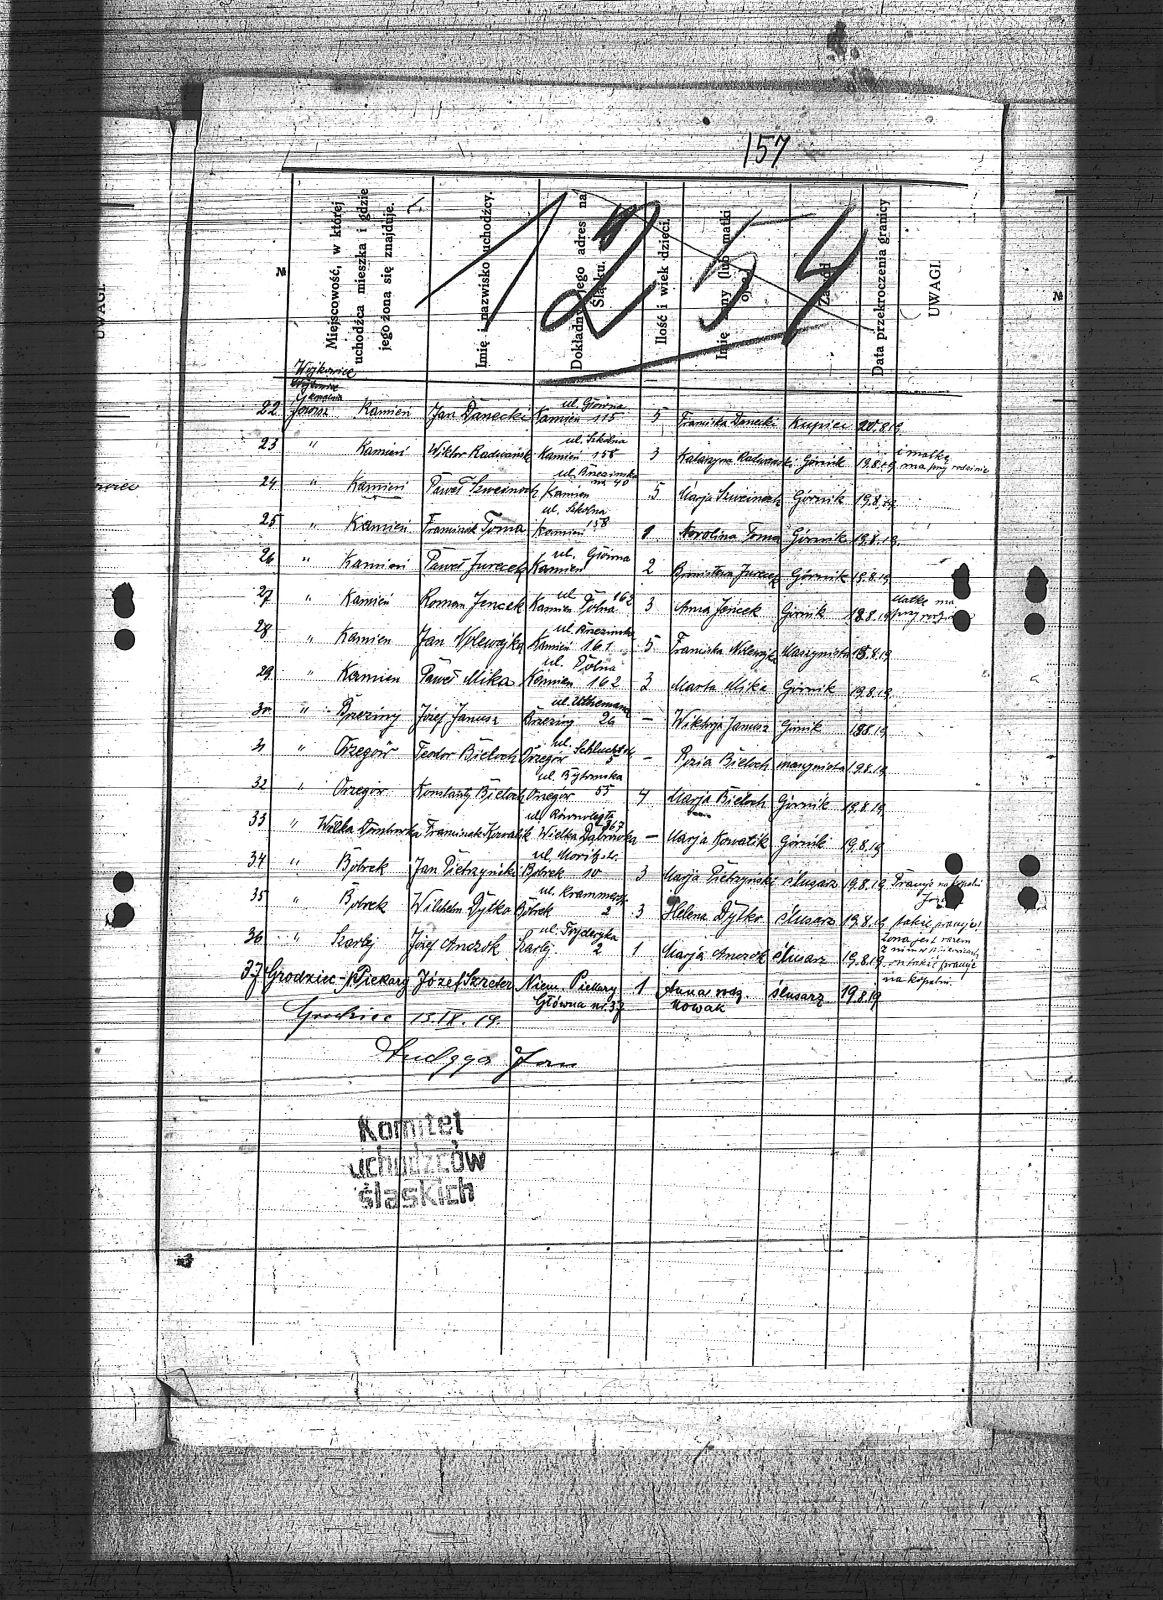 157
1254
№
Miejscowość, w której uchodźca mieszka i gdzie jego żona się znajduje.
Imię i nazwisko uchodźcy.
Dokładny jego adres na Śląsku.
Ilość i wiek dzieci.
Imię żony (lub matki ojca)
Data przekroczenia granicy
UWAGI.
UWAGI.
№
Wojkowice
22 Kamień Jan Danecki ul. Główna Kamień 115 5 Franciska Danecki Kupiec 20.8.19
23 " Kamień Wiktor Radwański ul. Szkolna Kamień 158 3 Katarzyna Radwański Górnik 19.8.19 i matkę ma przy rodzinie
24 " Kamień Paweł Szweinoch ul. Brzezinska no 40 Kamien 5 Marja Szweinoch Górnik 19.8.19
25 " Kamień Franciszek Toma ul. Szkolna Kamień 158 1 Karolina Toma Górnik 19.8.19.
26 " Kamień Paweł Jurecek ul. Główna Kamien 2 Bronisława Jurecek Górnik 19.8.19
27 " Kamień Roman Jencek ul. Polna 162 Kamien 3 Anna Jencek Górnik 19.8.19 Matkę ma przy
28 " Kamien Jan ul. Brzezinska Kamień 161 5 Franciska Maszynista 18.8.19
29 " Kamien Paweł Mika ul. Polna Kamien 162 3 Marta Mika Górnik 19.8.19
30 " Brzeziny Józef Janusz Brzeziny 26 — Wiktorja Janusz Górnik 19.8.19
31 " Orzegów Teodor Bieloch ul. Orzegów 5 — Rozia Bieloch maszynista 19.8.19
32 " Orzegów Konstanty Bieloch ul. Bytomska Orzegów 55 4 Marja Bieloch Górnik 19.8.19
33 " Wielka Dombrowka Franciszek Kowalik Wielka Dąbrówka — Marja Kowalik Górnik 19.8.19
34 " Bobrek Jan Pietrzynski ul. Moritzstr. Bobrek 10 3 Marja Pietrzynski ślusarz 19.8.19 Pracuje na kopalni
35 " Bobrek Wilhelm Dytko Bobrek 2 3 Helena Dytko ślusarz 19.8.19 także pracuje!
36 " Szarlej Józef Anczok ul. Fryderyka Szarlej 2 1 Marja Anczok ślusarz 19.8.19 Żona jest razem z nim on także pracuje na kopalni!
37 Grodziec-N/Piekary Józef Szreter Niem. Piekary Główna nr. 37 1 Anna rodz. Nowak ślusarz 19.8.19
Grodziec 15.IX.19.
Jan
Komitet
uchodźców
śląskich